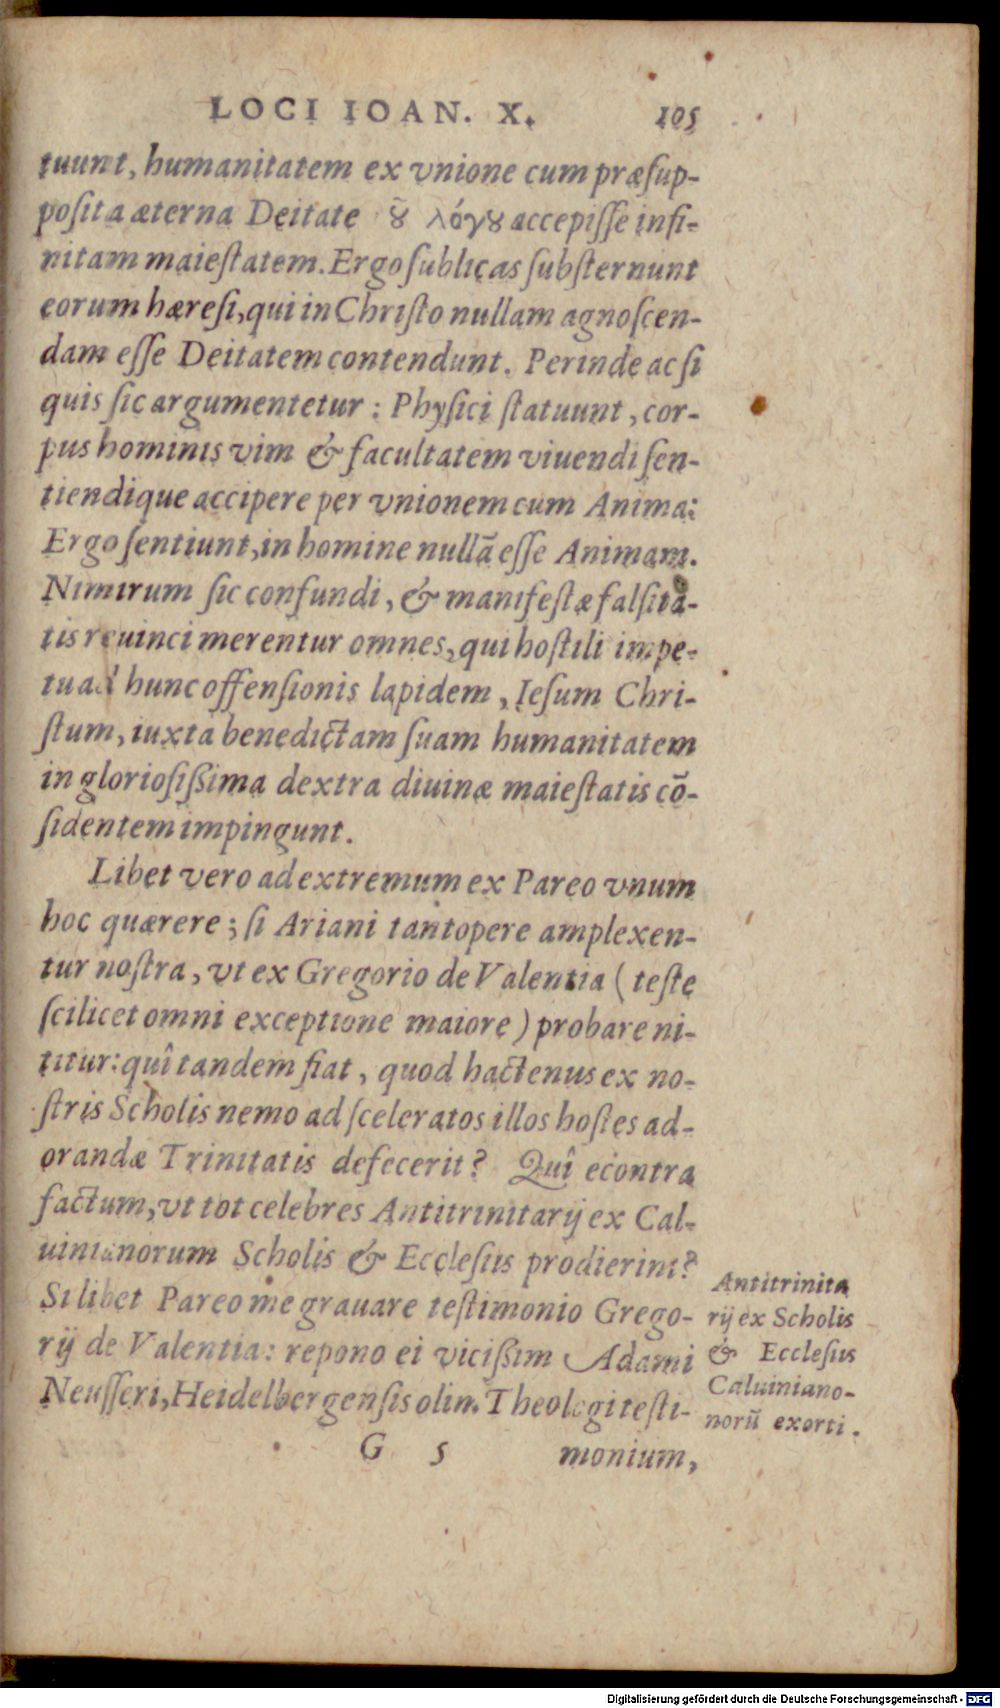 LOCI IOAN. X. 105
tuunt, humanitatem ex vnione cum præsup-
posita æterna Deitate τȣ̃ λόγȣ accepisse infi-
nitam maiestatem. Ergo sublicas substernunt
eorum hæresi, qui in Christo nullam agnoscen-
dam esse Deitatem contendunt. Perinde ac si
quis sic argumentetur: Physici statuunt, cor-
pus hominis vim & facultatem viuendi sen-
tiendique accipere per vnionem cum Anima:
Ergo sentiunt, in homine nullā esse Animam.
Nimirum sic confundi, & manifestæ falsita-
tis reuinci merentur omnes, qui hostili impe-
tu ad hunc offensionis lapidem, Iesum Chri-
stum, iuxta benedictam suam humanitatem
in gloriosißima dextra diuinæ maiestatis cō-
sidentem impingunt.
Libet vero ad extremum ex Pareo vnum
hoc quærere; si Ariani tantopere amplexen-
tur nostra, vt ex Gregorio de Valentia (teste
scilicet omni exceptione maiore) probare ni-
titur: quî tandem fiat, quod hactenus ex no-
stris Scholis nemo ad sceleratos illos hostes ad-
orandæ Trinitatis defecerit? Quî econtra
factum, vt tot celebres Antitrinitarij ex Cal-
uinianorum Scholis & Ecclesiis prodierint?
Si libet Pareo me grauare testimonio Grego-
rij de Valentia: repono ei vicißim Adami
Neusseri, Heidelbergensis olim Theologi testi-
Antitrinita
rij ex Scholis
& Ecclesiis
Caluiniano-
norū exorti.
G 5 monium,
Digitalisierung gefördert durch die Deutsche Forschungsgemeinschaft - DFG